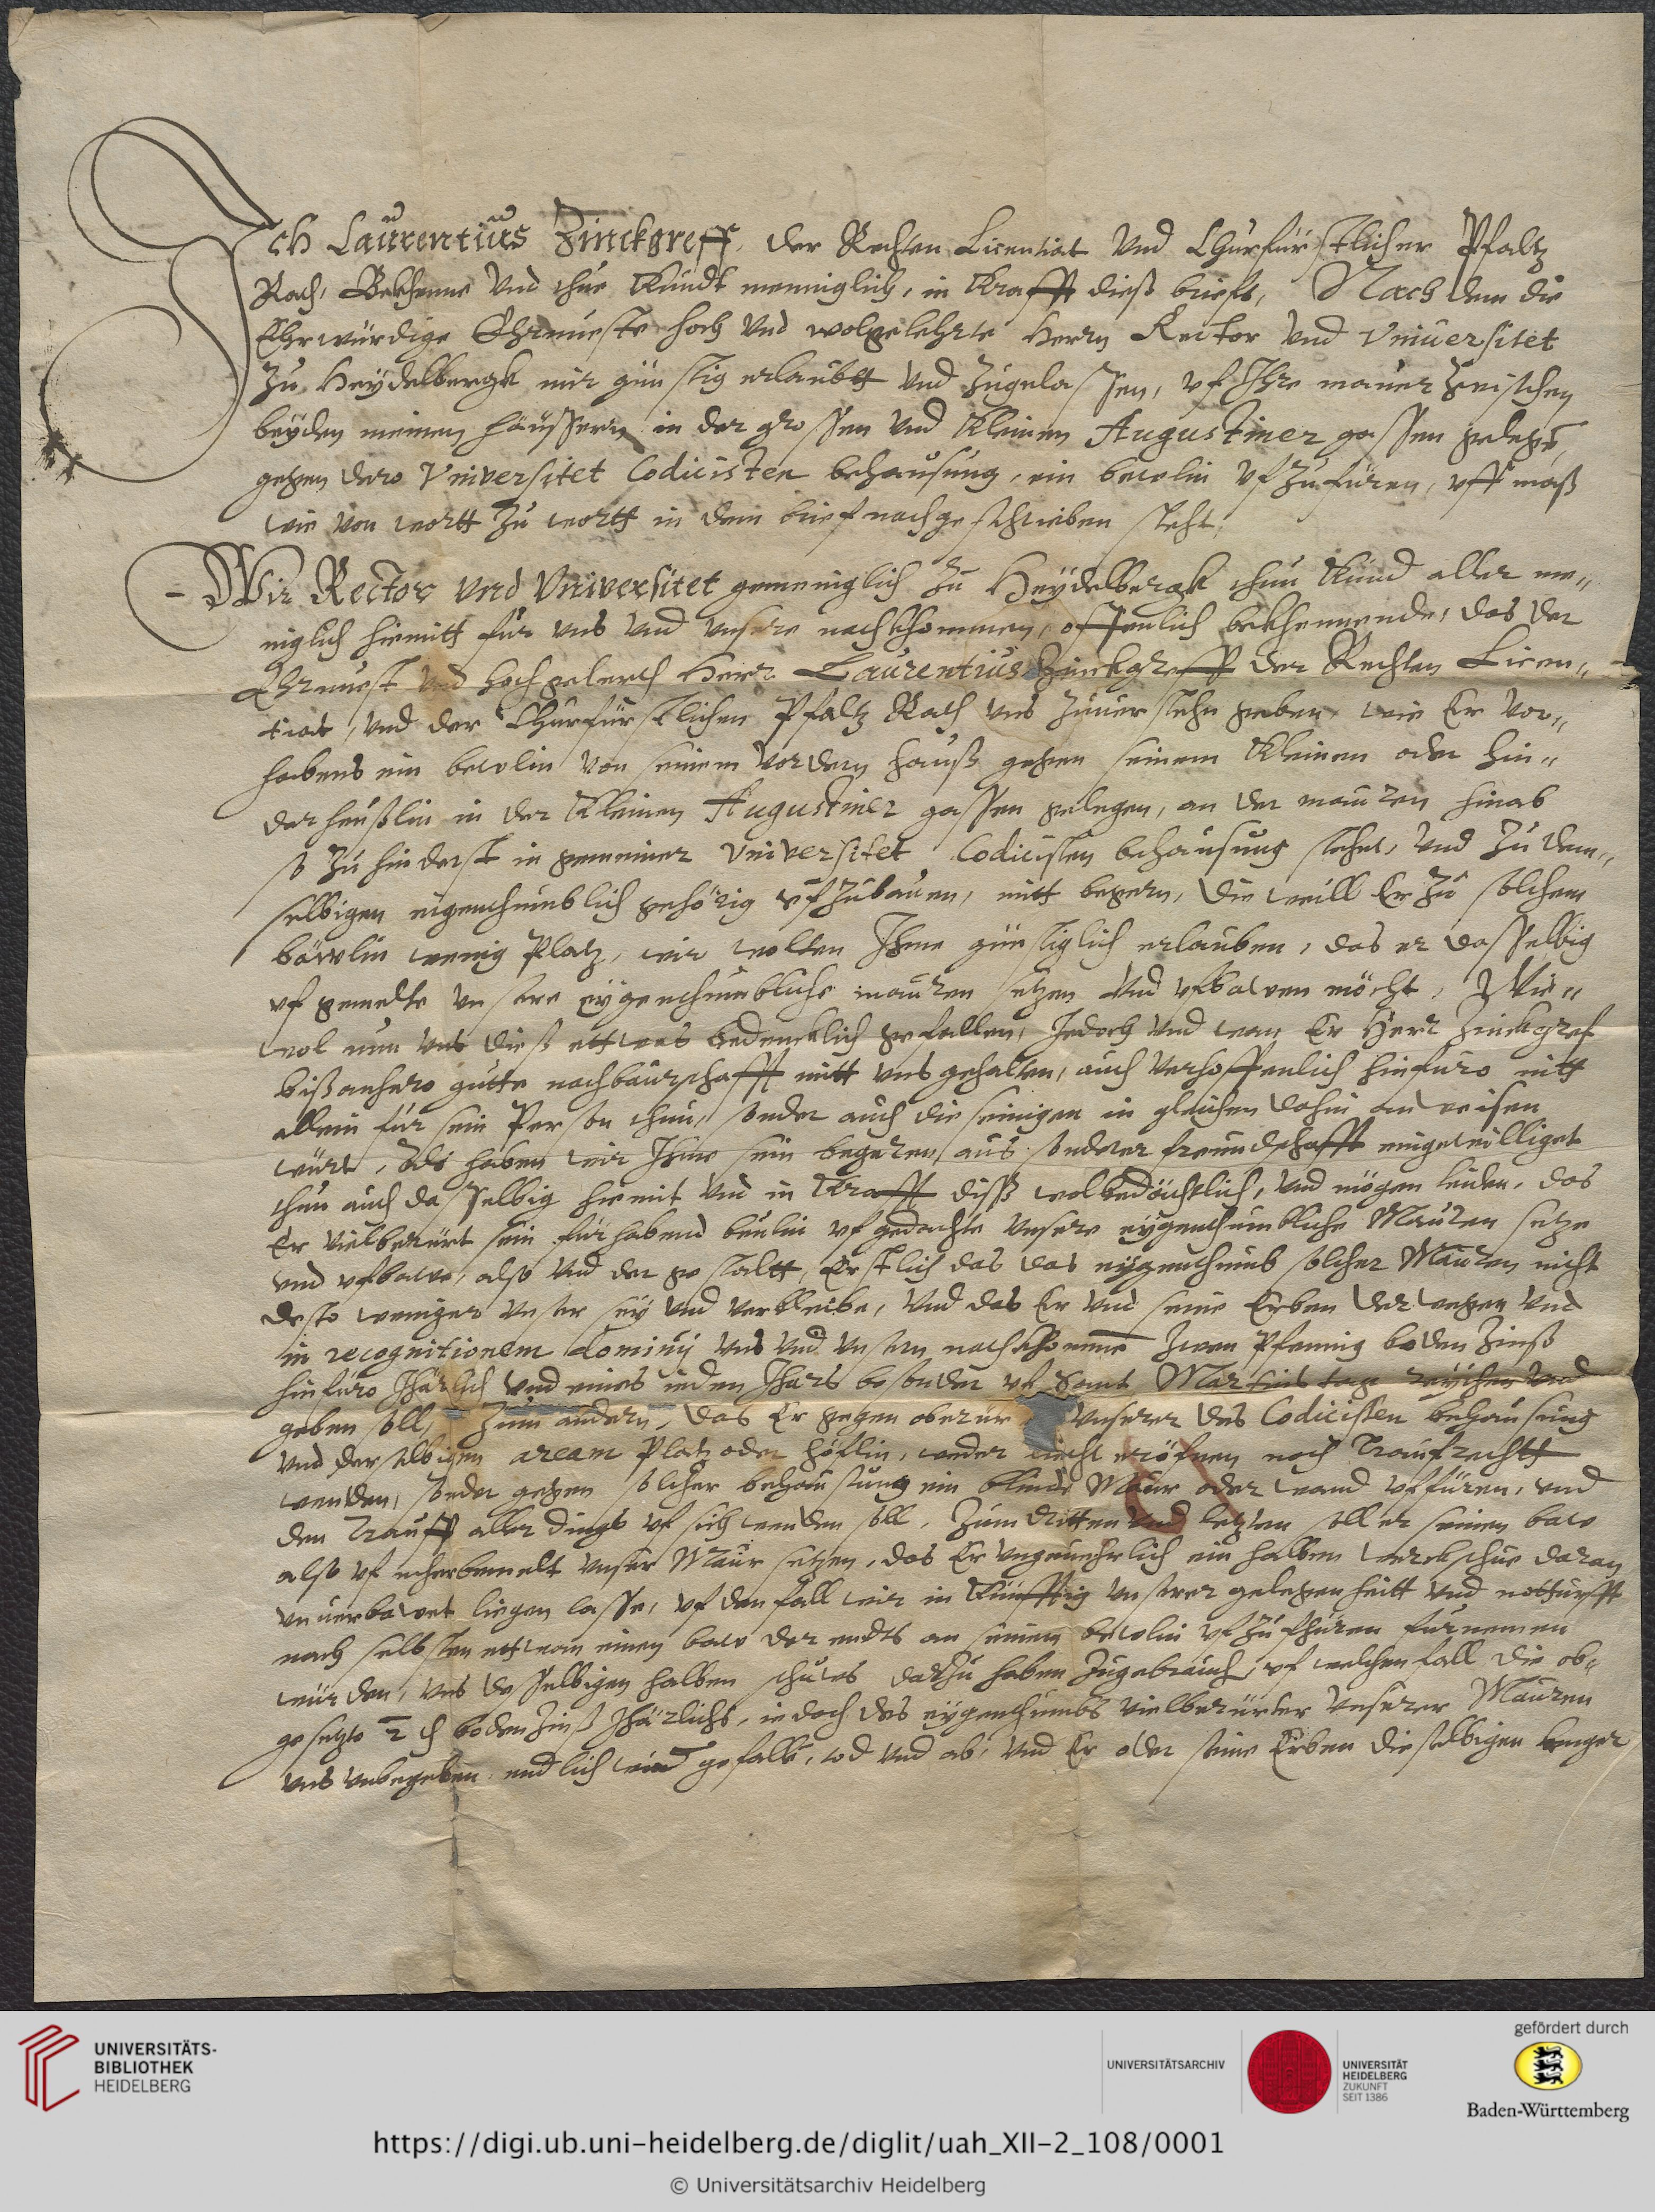 Ich Laurentius Zinckgreff, der Rechten Licentiat Und Churfürstlicher Pfaltz
Rath, Bekhenne Und thue Kundt menniglich, in Krafft dieß brieffs, Nach dem die
Ehrwürdige Ehrnueste hoch Und wolgelehrte Herrn Rector Und Vniuersitet
Zu Heydelbergk mir günstig erlaubtt Und Zugelassen, vf Ihre mauer Zwischen
beyden meinen häussern in der grossen Und Kleinen Augustiner gassen gelegen
gegen dero Vniversitet Codicisten behausung, ein bewlin Vf Zufüren, vff maß
wie von wortt Zu wortt in dem brief nachgeschrieben steht,
Wir Rector Und Vniversitet gemeiniglich Zu Heydelbergk thun Kund aller me„
niglich hiemitt für Uns Und Unsere nachkhommen, offenlich bekhennende, das der
Ehrnuest Und hochgelerth Herr Laurentius Zinckgreff der Rechten Licen„
tiat, Und der Churfürstlichen Pfaltz Rath Uns Zuuerstehn geben, wie Er Vor„
habens ein bewlin Von seinem Vordern hauß gegen seinem Kleinen oder hin„
der heußlin in der Kleinen Augustiner gassen gelegen, an der mauren hinab
so Zu hinderst in gemeiner Vniversitet Codicisten behausung stehet, Und Zu dem„
selbigen eigenthumblich gehörig vf Zubauen, mitt begern, die weill Er Zu solchem
bäwlin wenig Platz, wir wolten Ihme günstiglich erlauben, das er dasselbig
vf gemelte Unsere eygenthumbliche mauren setzen Und vfbawen möcht, Wie„
wol nun Uns dieß ettwas bedencklich gefallen, Jedoch Und wan Er Herr Zinckgref
bißanhero gutte nachbaurschafft mitt Uns gehalten, auch Verhoffenlich hinfuro nitt
allein für sein Person thun, sonder auch die seinigen in gleichem dahin anweisen
würt, Als haben wir Ihme sein begeren aus sonderer freundschafft eingewilliget
thun auch dasselbig hiemit Und in Krafft diß wolbedächtlich, Und mögen leiden, das
Er Vielberürt sein fürhabend beulin vf gedachte Unsere eygenthumbliche Mauren setze
Und vfbawe, also Und der gestaltt, Erstlich das das eygenthumb solcher Mauren nicht
desto weniger Unser sey Und Verbleibe, Und das Er Und seine Erben derwegen Und
in recognitionem dominij Uns Und Unsern nachkhommen Zwen Pfennig boden Zinß
hinfüro Jhärlich Und eines ieden Jhars besonder vf Sant Martins tage reychen Und
geben soll, Zum andern, das Er gegen oberür Unserer des Codicisten behausung
Und derselbigen aream Platz oder höflin, weder liecht eröfnen noch Traufrechtt
wenden, sonder gegen solcher behausung ein blinde Maur oder wand vffüren, Und
den Trauff aller dings vf sich wenden soll, Zum dritten Und letzten soll er seinen baw
also vf ehebemelt Unser Maur setzen, das Er Ungeuehrlich ein halben werckschue daran
Unuerbawet liegen lasse, vf den fall wir in Künfftig Unserer gelegenheitt Und notturfft
nach selbsten ettwan einen baw der endts an seinem bewlin vf Zufhüren furnemen
würden, Uns desselbigen halben schues darZu haben Zugebrauch, vf welchen fall die ob„
gesetzte 2 ₰ boden Zinß Jhärlichs, iedoch des eygenthumbs Vielberürter Unserer Mauren
Uns Unbegeben endlich gefalle, tod Und ab, Und Er oder seine Erben dieselbigen lenger
UNIVERSITÄTS-
BIBLIOTHEK
HEIDELBERG
UNIVERSITÄTSARCHIV
UNIVERSITÄT
HEIDELBERG
ZUKUNFT
SEIT 1386
gefördert durch
Baden-Württemberg
https://digi.ub.uni-heidelberg.de/diglit/uah_XII-2_108/0001
© Universitätsarchiv Heidelberg